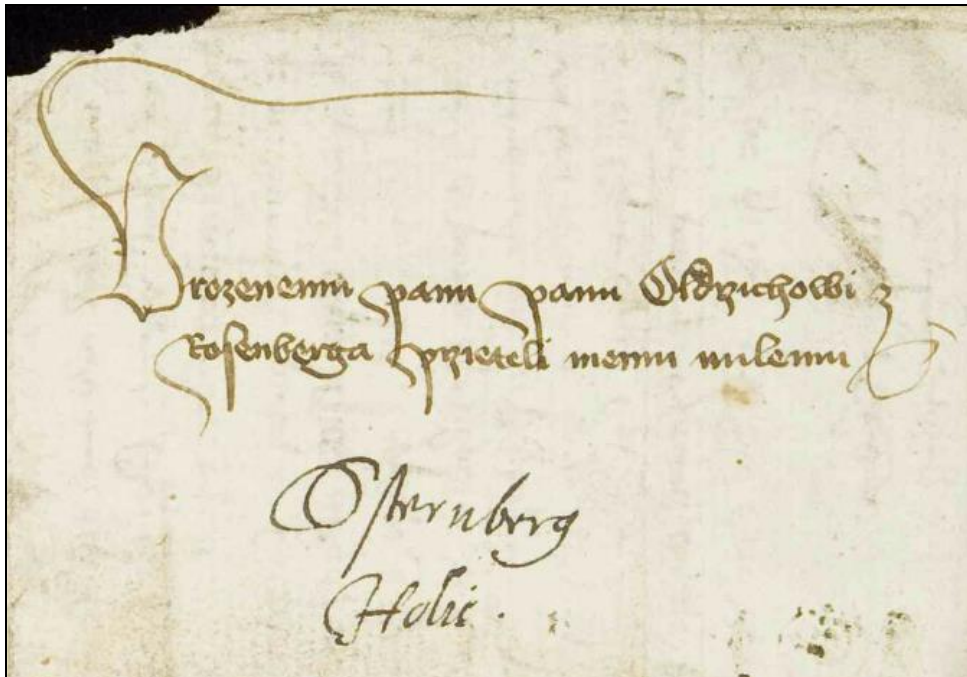 Urozenemu panu panu Oldrzichowi z
Rosenberga przieteli memu milemu
Sternberg
Holic.